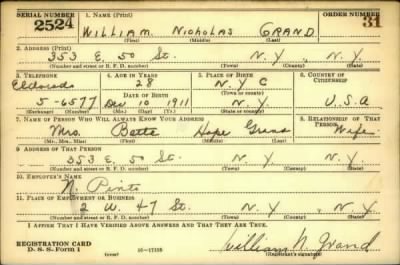 SERIAL NUMBER 1. NAME (Print) ORDER NUMBER
2524 WILLIAM NICHOLAS GRAND 31
(First) (Middle) (Last)
2. ADDRESS (Print)
353 E. 50 St. N.Y. N.Y.
(Number and street or R. F. D. number) (Town) (County) (State)
3. TELEPHONE 4. AGE IN YEARS 5. PLACE OF BIRTH 6. COUNTRY OF CITIZENSHIP
Eldorado 28 N.Y.C
DATE OF BIRTH (Town or county)
5-6577 Dec 10 1911 N.Y. U.S.A
(Exchange) (Number) (Mo.) (Day) (Yr.) (State or country)
7. NAME OF PERSON WHO WILL ALWAYS KNOW YOUR ADDRESS 8. RELATIONSHIP OF THAT PERSON
Mrs. Bette Hope Grand Wife
(Mr., Mrs., Miss) (First) (Middle) (Last)
9. ADDRESS OF THAT PERSON
353 E. 50 St. N.Y. N.Y.
(Number and street or R. F. D. number) (Town) (County) (State)
10. EMPLOYER'S NAME
N. Pinto
11. PLACE OF EMPLOYMENT OR BUSINESS
2 W. 47 St. N.Y. N.Y.
(Number and street or R. F. D. number) (Town) (County) (State)
I AFFIRM THAT I HAVE VERIFIED ABOVE ANSWERS AND THAT THEY ARE TRUE.
REGISTRATION CARD
D. S. S. Form 1 16-17105 William N. Grand
(over) (Registrant's signature)